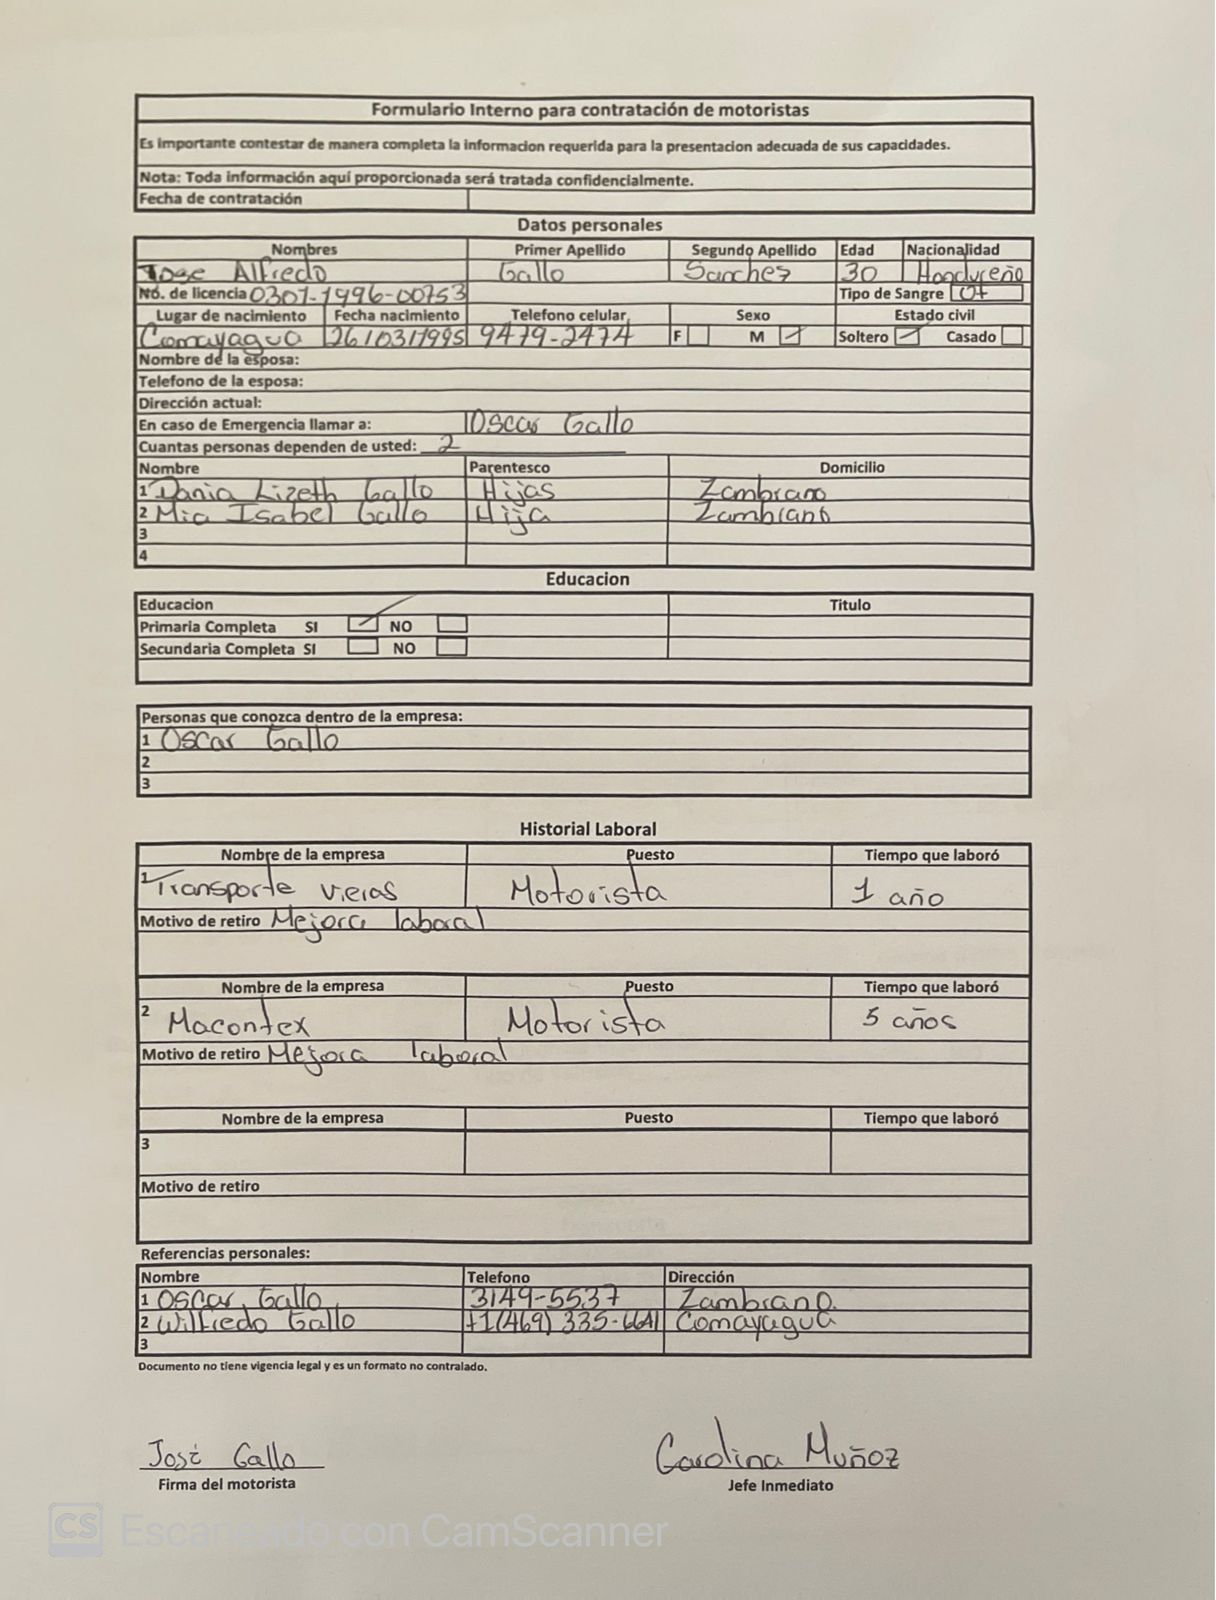 Formulario Interno para contratación de motoristas
Es importante contestar de manera completa la informacion requerida para la presentacion adecuada de sus capacidades.
Nota: Toda información aquí proporcionada será tratada confidencialmente.
Fecha de contratación
Datos personales
Nombres Primer Apellido Segundo Apellido Edad Nacionalidad
Jose Alfredo Gallo Sanches 30 Hondureño
No. de licencia 0301-1996-00753 Tipo de Sangre O+
Lugar de nacimiento Fecha nacimiento Telefono celular Sexo Estado civil
Comayagua 26/03/1995 9479-2474 F M Soltero Casado
Nombre de la esposa:
Telefono de la esposa:
Dirección actual:
En caso de Emergencia llamar a: Oscar Gallo
Cuantas personas dependen de usted: 2
Nombre Parentesco Domicilio
1 Dania Lizeth Gallo Hijas Zambrano
2 Mia Isabel Gallo Hija Zambrano
3
4
Educacion
Educacion Titulo
Primaria Completa SI NO
Secundaria Completa SI NO
Personas que conozca dentro de la empresa:
1 Oscar Gallo
2
3
Historial Laboral
Nombre de la empresa Puesto Tiempo que laboró
1 Transporte vieras Motorista 1 año
Motivo de retiro Mejora laboral
Nombre de la empresa Puesto Tiempo que laboró
2 Macontex Motorista 5 años
Motivo de retiro Mejora laboral
Nombre de la empresa Puesto Tiempo que laboró
3
Motivo de retiro
Referencias personales:
Nombre Telefono Dirección
1 Oscar Gallo 3149-5537 Zambrano.
2 Wilfredo Gallo +1(469) 335-6641 Comayagua
3
Documento no tiene vigencia legal y es un formato no contralado.
José Gallo Carolina Muñoz
Firma del motorista Jefe Inmediato
CS Escaneado con CamScanner